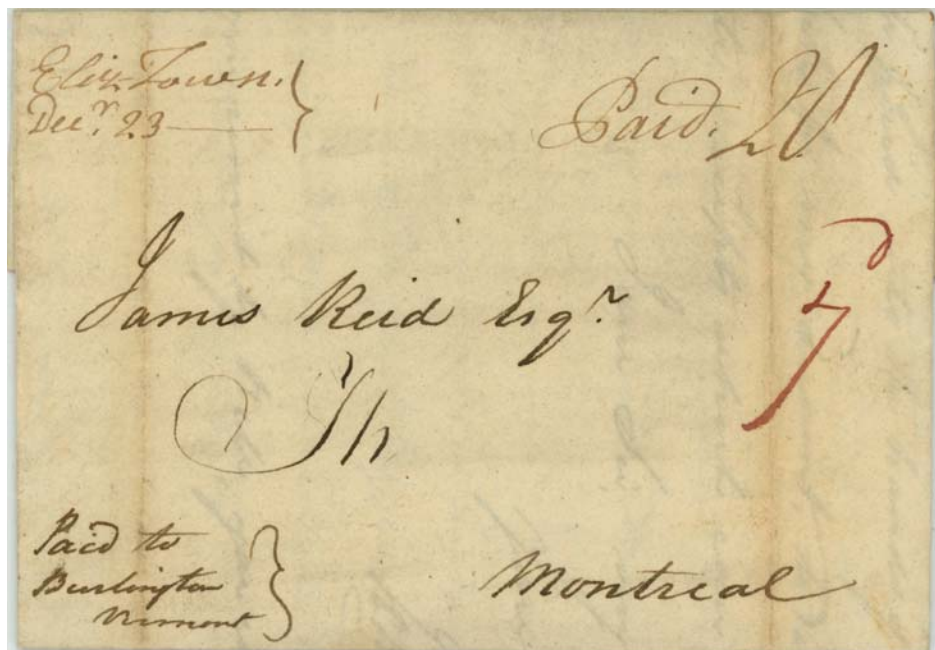 Eliz Town.
Decr. 23
Paid. 20
James Reid Esqr.
7
Paid to
Burlington
Vermont
Montreal